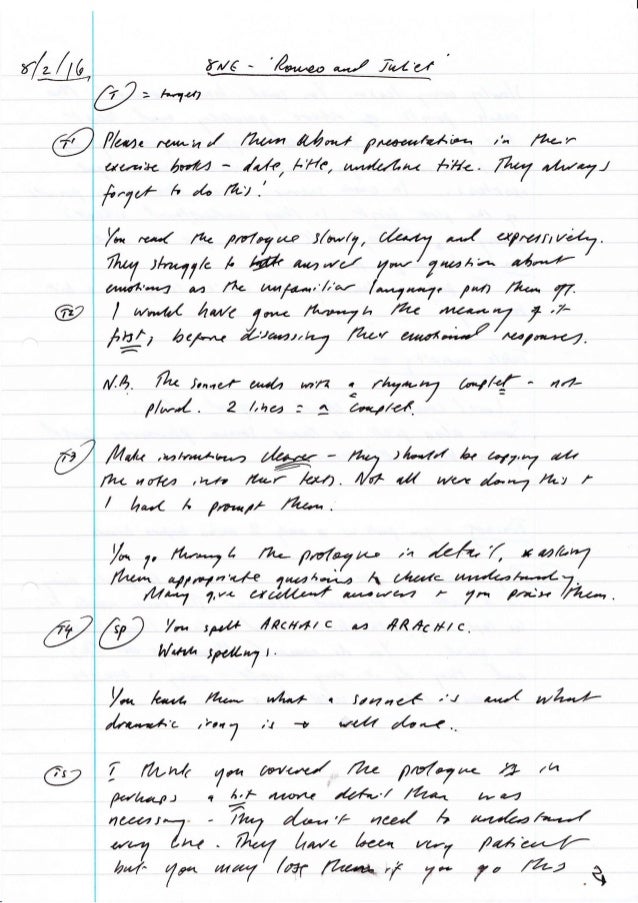 8/2/16 8NE - 'Romeo and Juliet'
(T) = targets
(T1) Please remind them about presentation in their
exercise books - date, title, underline title. They always
forget to do this!
You read the prologue slowly, clearly and expressively.
They struggle to answer your question about
emotions as the unfamiliar language puts them off.
(T2) I would have gone through the meaning of it
first, before discussing their emotional responses.
N.B. The sonnet ends with a rhyming couplet - not
plural. 2 lines = a couplet.
(T3) Make instructions clearer - they should be copying all
the notes into their texts. Not all were doing this +
I had to prompt them.
You go through the prologue in detail, asking
them appropriate questions to check understanding.
Many give excellent answers + you praise them.
(T4) (SP) You spelt ARCHAIC as ARACHIC.
Watch spellings.
You teach them what a sonnet is and what
dramatic irony is → well done.
(T5) I think you covered the prologue in
perhaps a bit more detail than was
necessary. - They don't need to understand
every line. They have been very patient
but you may lose them if you go this